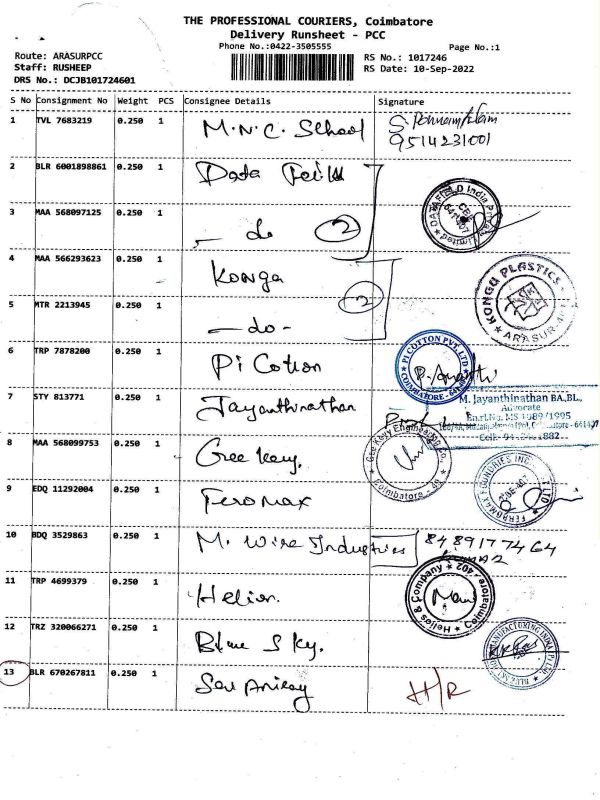 THE PROFESSIONAL COURIERS, Coimbatore
Delivery Runsheet - PCC
Phone No.:0422-3505555
Page No.:1
Route: ARASURPCC
Staff: RUSHEEP
DRS No.: DCJB101724601
RS No.: 1017246
RS Date: 10-Sep-2022
S No Consignment No Weight PCS Consignee Details Signature
1 TVL 7683219 0.250 1 M.N.C. School
9514231001
2 BLR 6001898861 0.250 1 Data Feild
DATAFIELD India Private Limited
3 MAA 568097125 0.250 1 - do 2
4 MAA 566293623 0.250 1 Konga
KONGU PLASTICS
5 MTR 2213945 0.250 1 - do - 2
6 TRP 7878200 0.250 1 Pi Cotton
PI COTTON PVT. LTD
COIMBATORE - 641
7 STY 813771 0.250 1 Jayanthinathan
M. Jayanthinathan BA,BL,
Advocate
Enrl.No. MS 1089/1995
8 MAA 568099753 0.250 1 Gee Key.
Gee Key Engineering Co.
Coimbatore
9 EDQ 11292004 0.250 1 Feromax
10 BDQ 3529863 0.250 1 M. Wire Industries
8489177464
11 TRP 4699379 0.250 1 Helios.
Helios & Company
12 TRZ 320066271 0.250 1 Blue Sky.
13 BLR 670267811 0.250 1
H/R